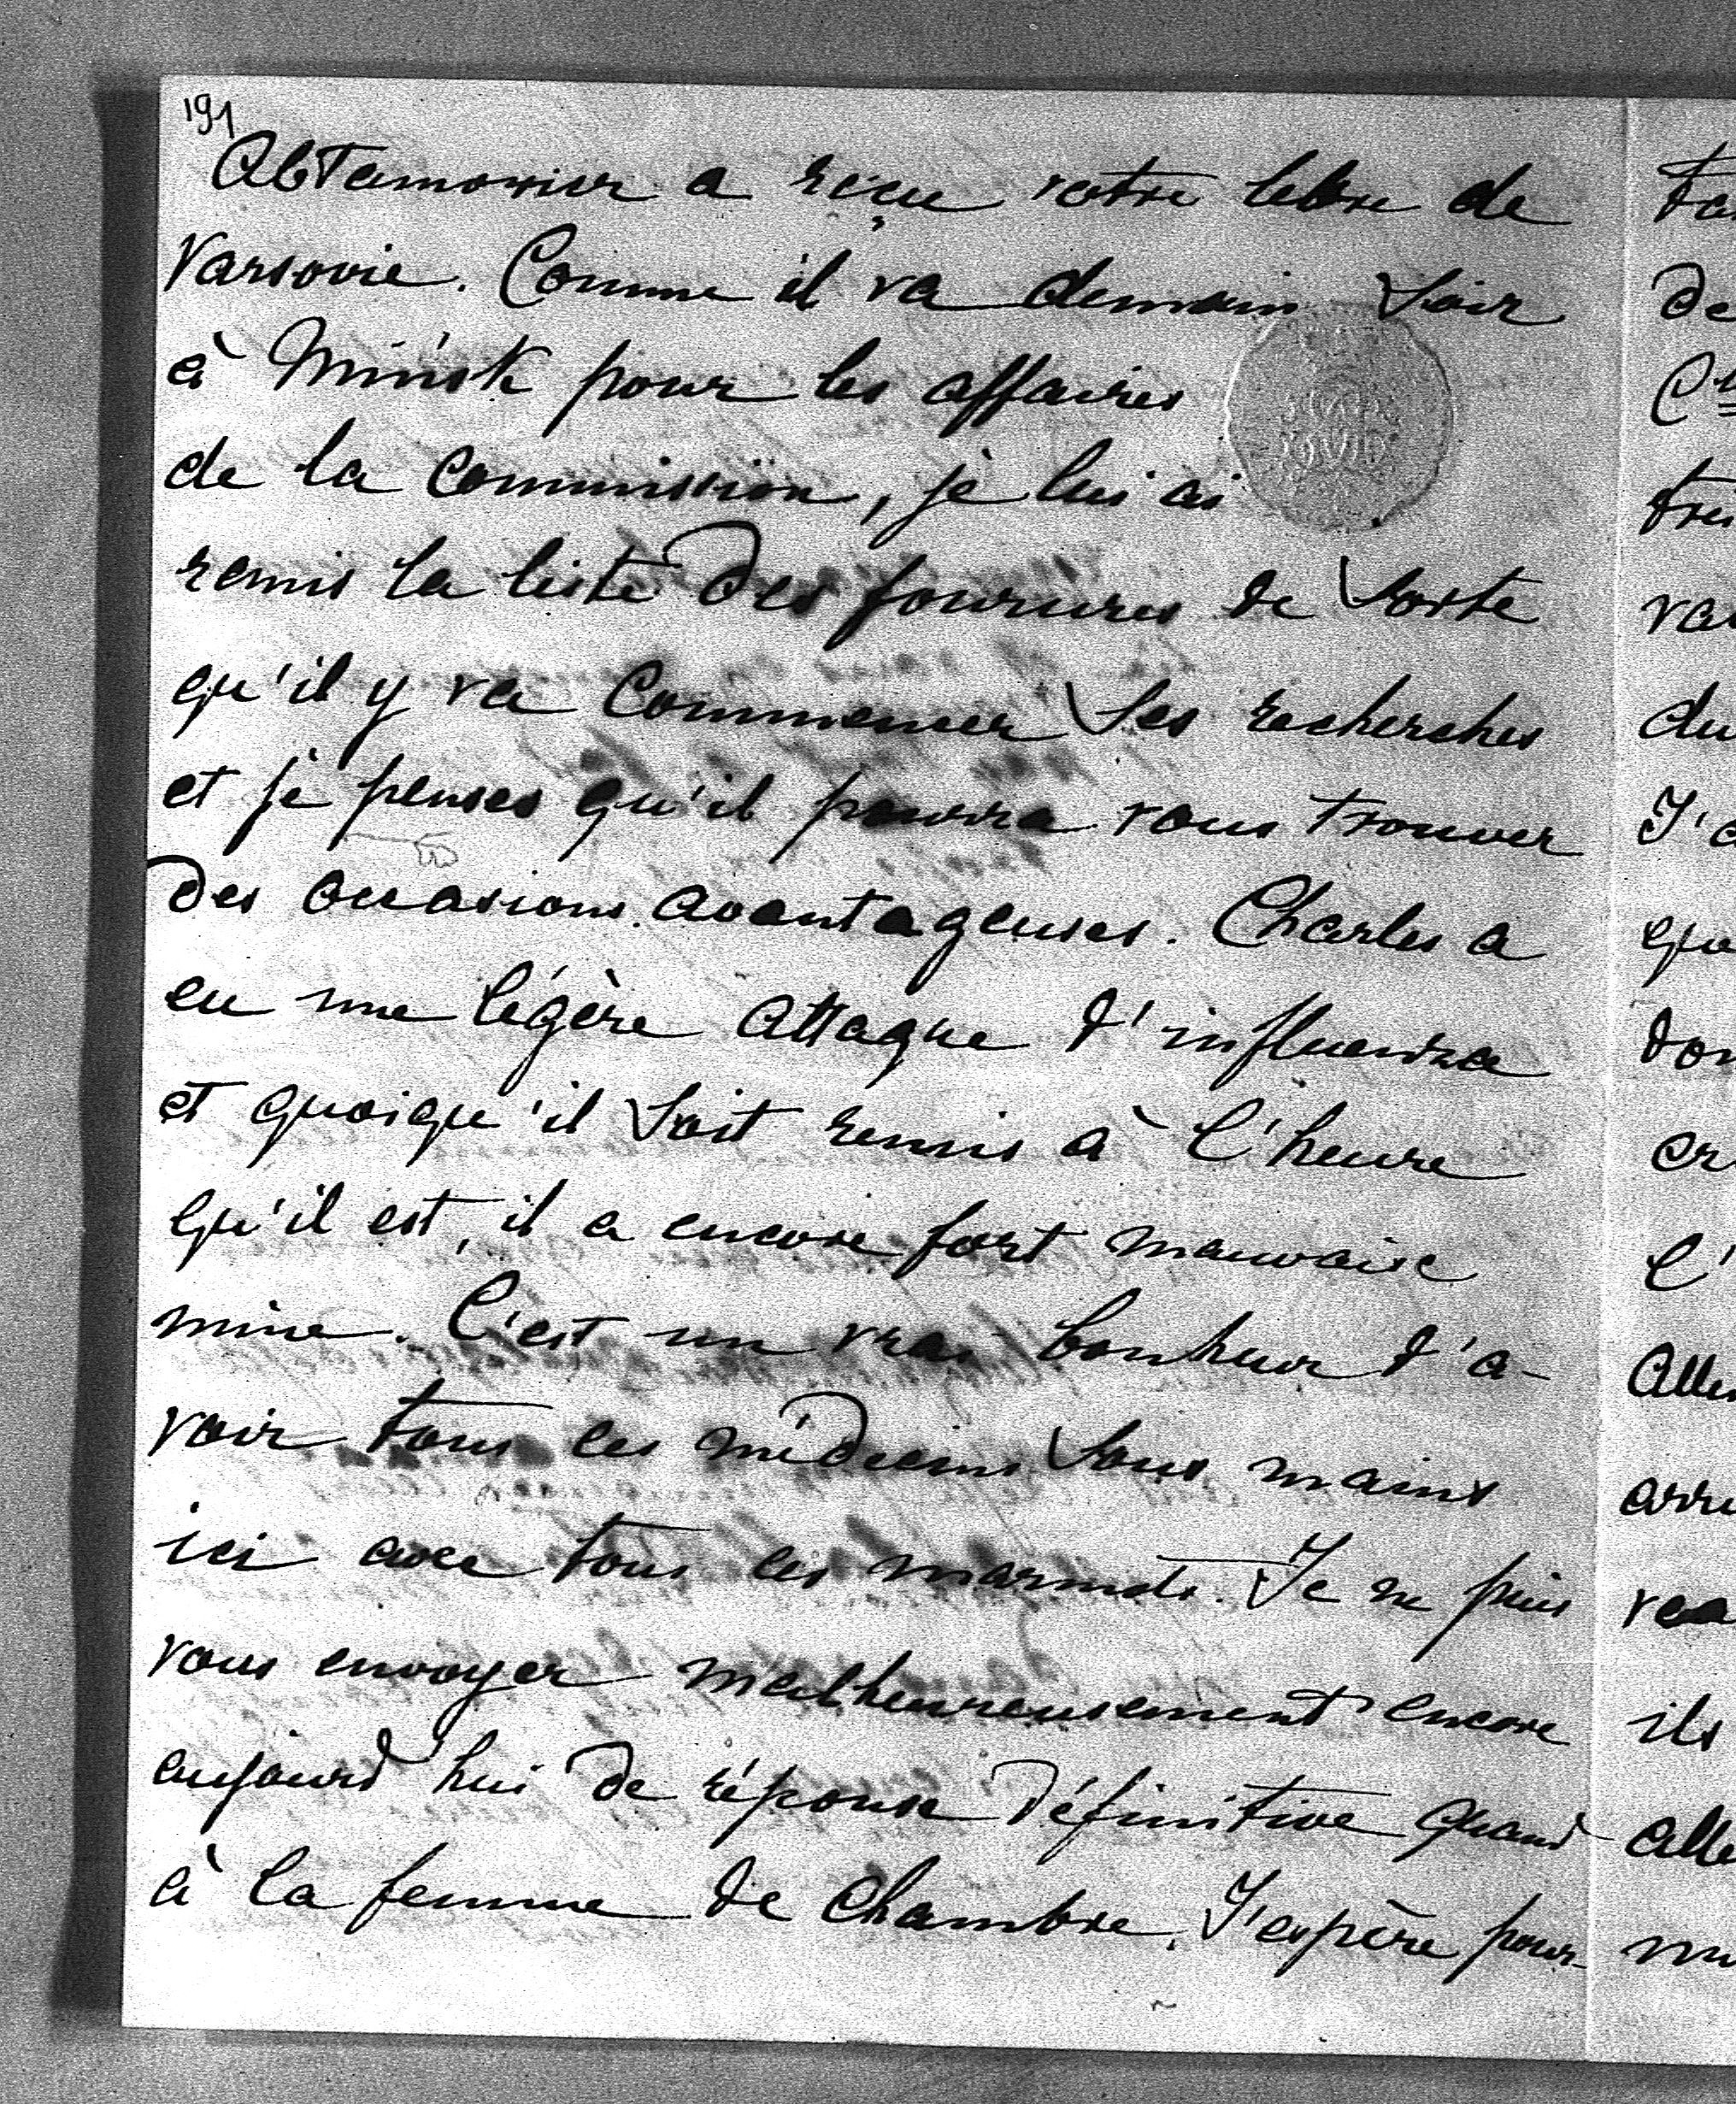 191
Abtamovier a reçue votre lettre de
Varsovie. Comme il va demain soir
à Minsk pour les affaires
de la commission, je lui ai
remis la liste des fourures de sorte
qu'il y va commencer ses recherches
et je penses qu'il pourra vous trouver
des occasions avantageuses. Charles a
eu une légère attaque d'influenza
et quoiqu'il soit remis à l'heure
qu'il est, il a encore fort mauvaise
mine. C'est un vrai bonheur d'a-
voir tous les médecins sous mains
ici avec tous ces marmots. Je ne puis
vous envoyer malheureusement encore
aujourd'hui de réponse définitive quand
à la femme de chambre. J'espère pour-